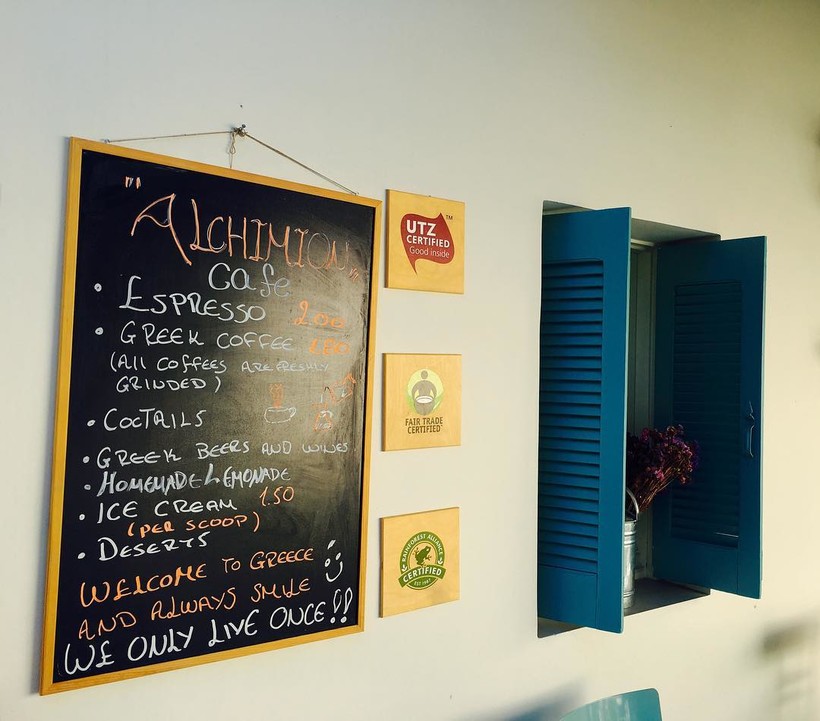 "ALCHIMION"
Cafe
• ESPRESSO 2.00
• GREEK COFFEE
(All COFFEES ARE FRESHLY
GRINDED)
• COCTAILS
• GREEK BEERS AND WINES
• HOMEMADE LEMONADE
• ICE CREAM 1.50
(PER SCOOP)
• DESERTS
WELCOME TO GREECE
AND ALWAYS SMILE :)
WE ONLY LIVE ONCE!!
UTZ TM
CERTIFIED
Good inside
FAIR TRADE
CERTIFIED
RAINFOREST ALLIANCE
CERTIFIED
EST. 1987